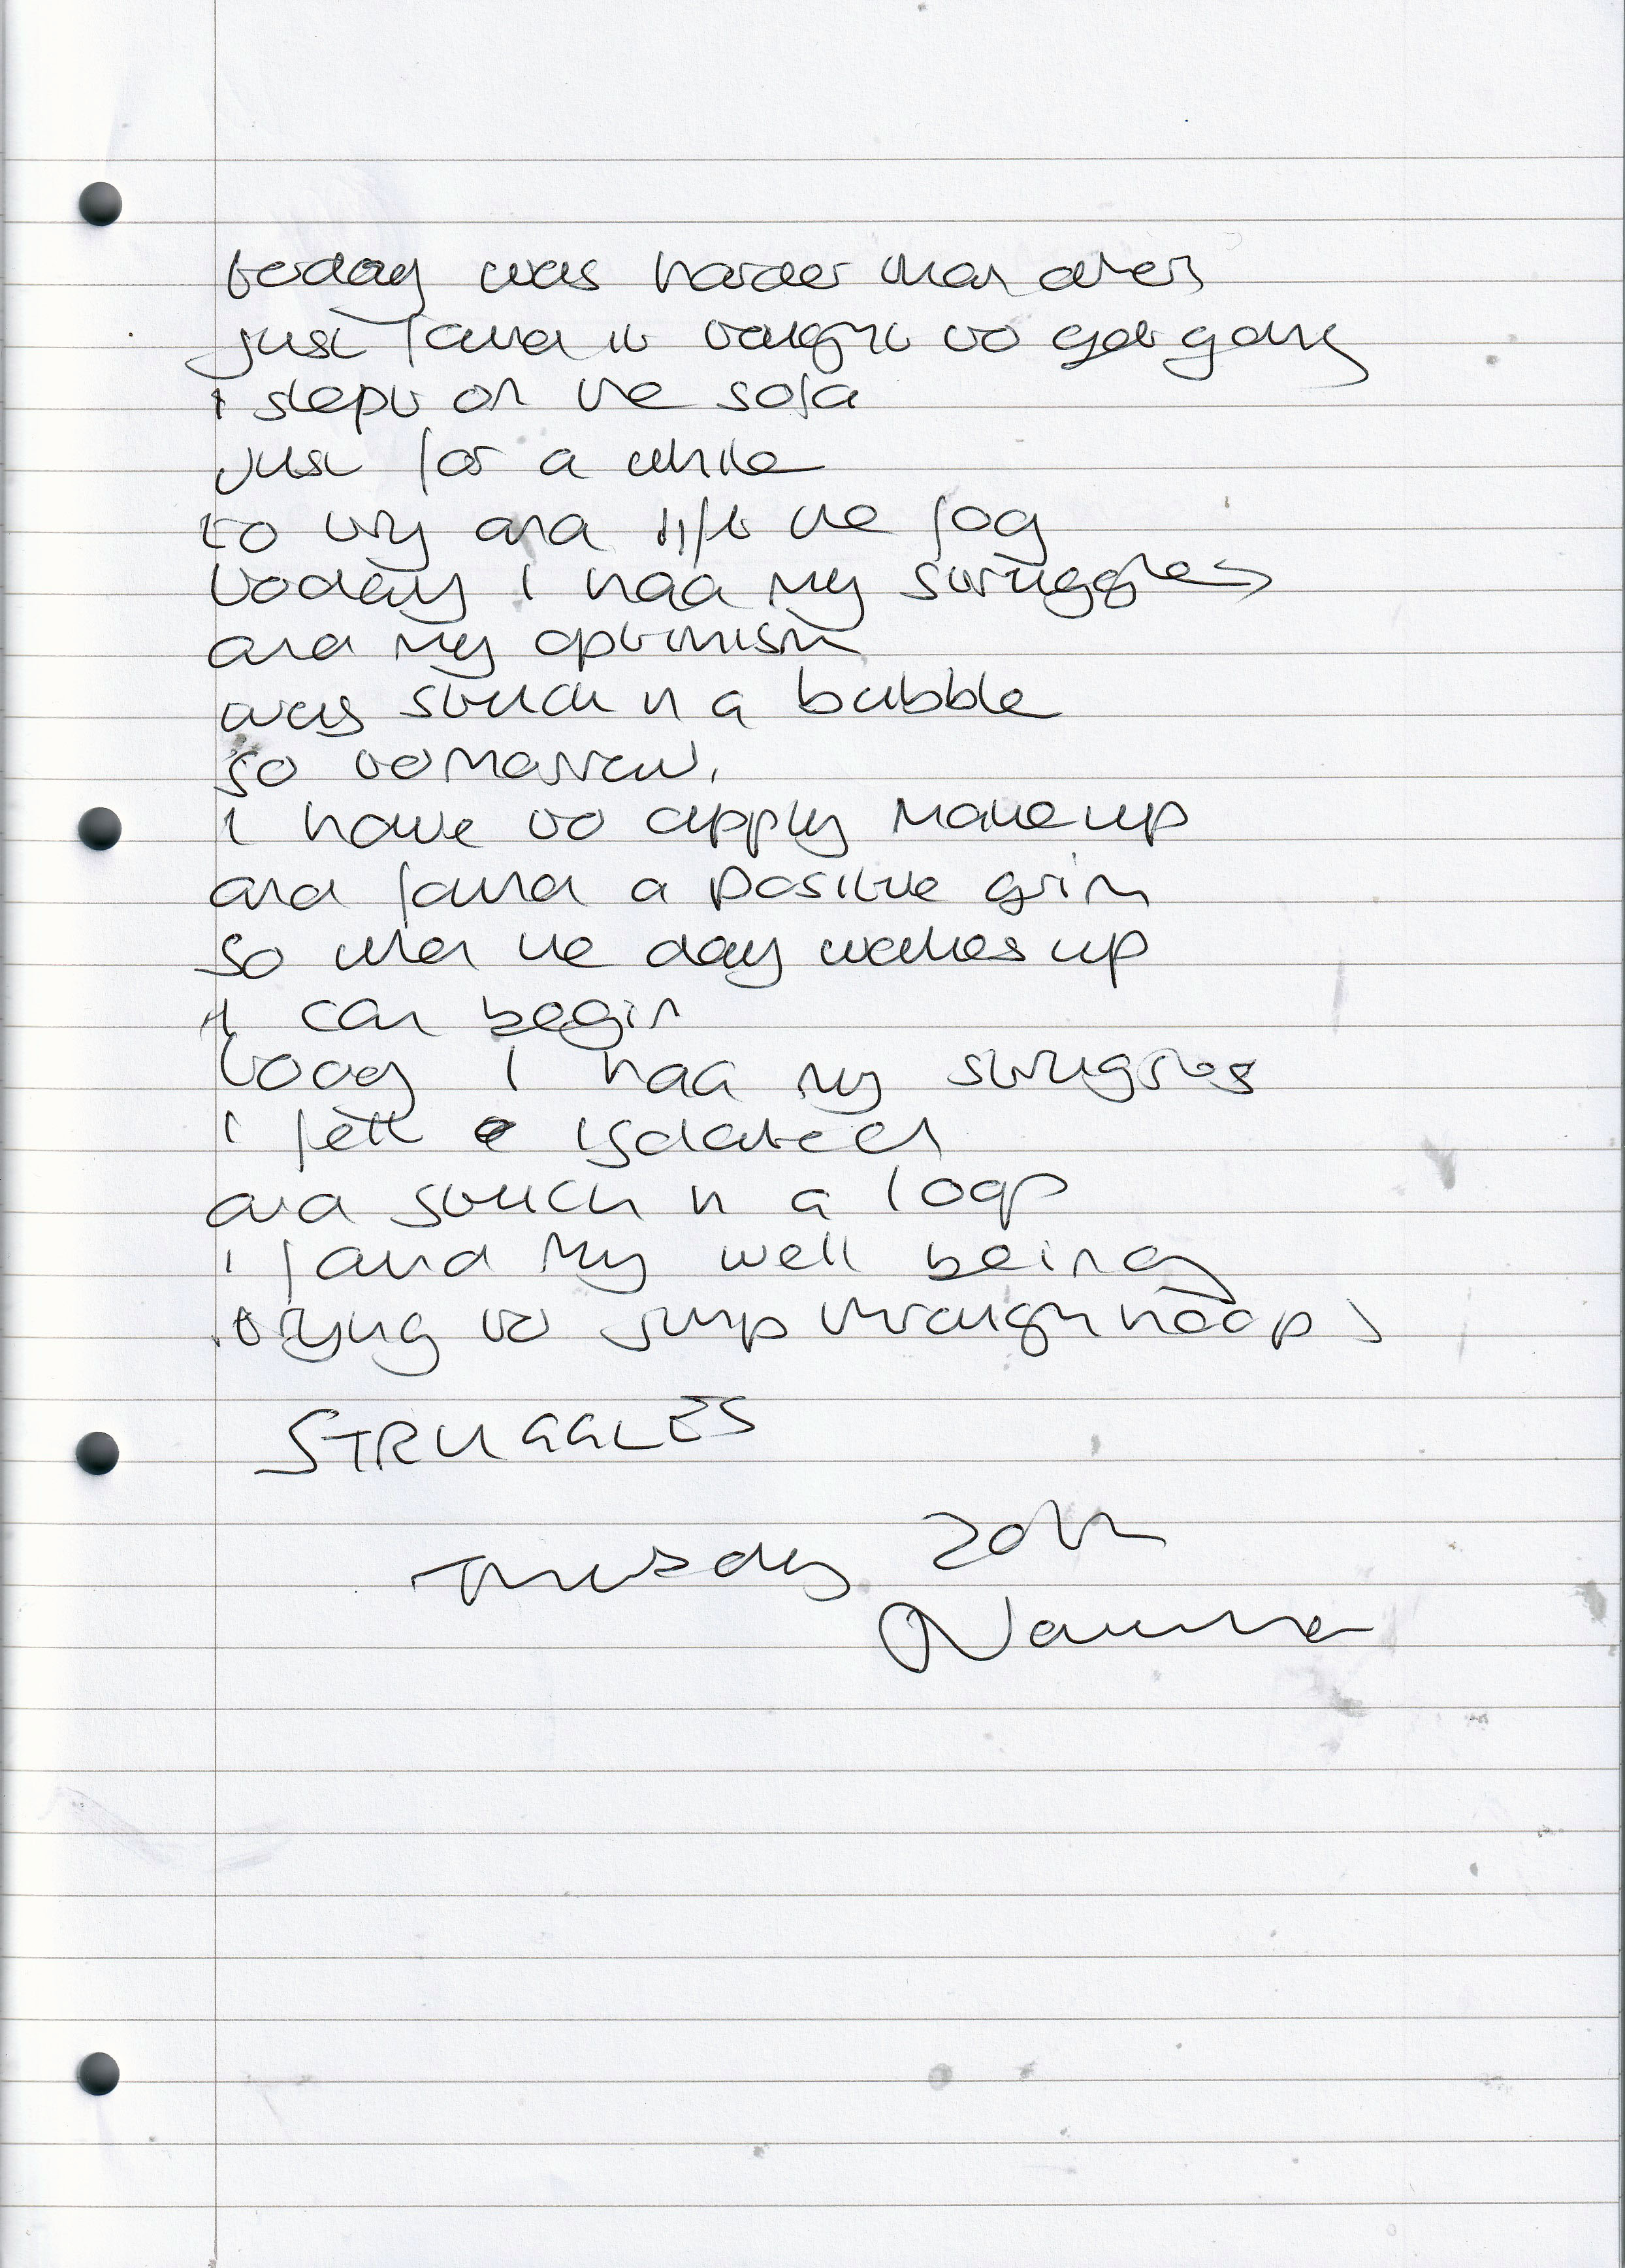 today was harder than others
just found it taught to get going
i slept on the sofa
just for a while
to try and lift the fog
today I had my struggles
and my optimism
was stuck in a bubble
so tomorrow,
I have to apply make up
and found a positive grin
so when the day wakes up
I can begin
today I had my struggles
I felt isolated
and stuck in a loop
i found my well being
trying to jump through hoops
STRUGGLES
20th
Thursday